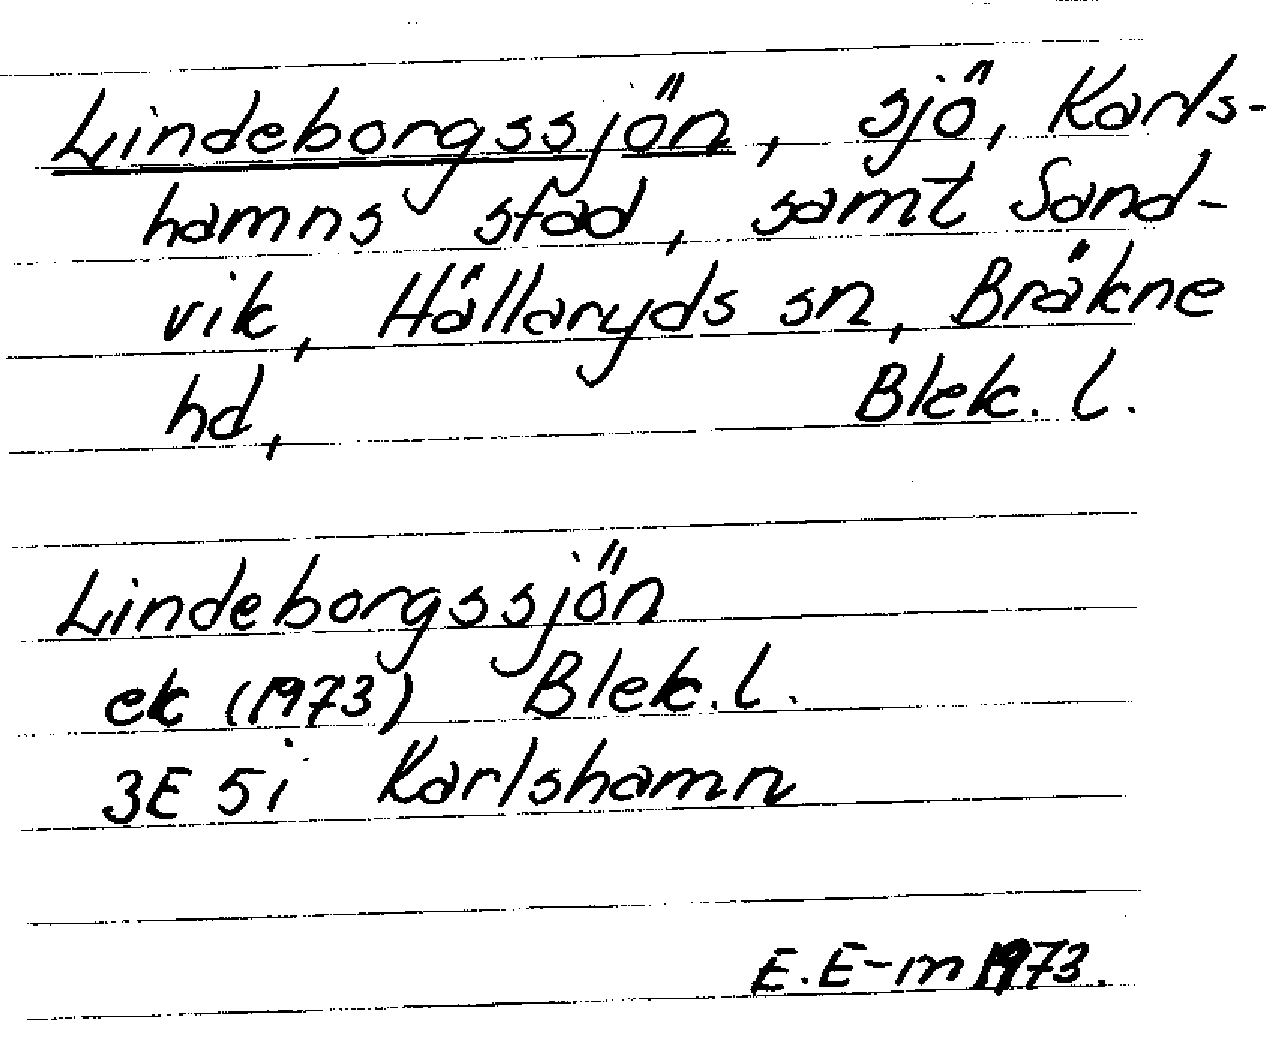 Lindeborgssjön, sjö, Karls-
hamns stad, samt Sand-
vik, Hällaryds sn, Bräkne
hd, Blek. l.
Lindeborgssjön
ek (1973) Blek. l.
3E 5i Karlshamn
E. E-m 1973.